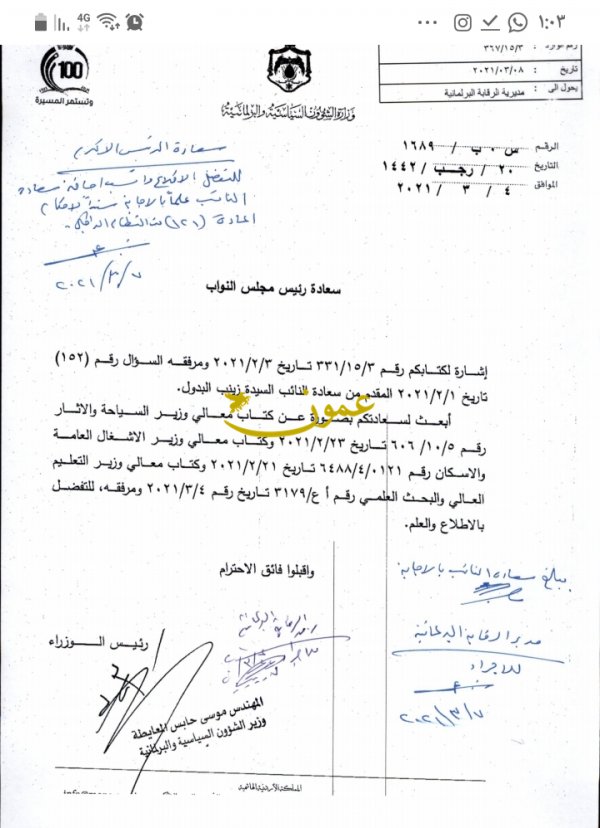 4G
١:٠٣
رقم الوارد : ٣٦٧/١٥/٣
تاريخ : ٢٠٢١/٠٣/٠٨
يحول الى : مديرية الرقابة البرلمانية
100
وتستمر المسيرة
وزارة الشؤون السياسية والبرلمانية
الرقم س ٠ ب / ١٦٨٩
التاريخ ٢٠ / رجب / ١٤٤٢
الموافق ٤ / ٣ / ٢٠٢١
سعادة الرئيس الاكرم
للتفضل الاطلاع
النائب علماً بالاجابة سنداً لاحكام
المادة من النظام الداخلي
٢٠٢١/٣/٧
سعادة رئيس مجلس النواب
إشارة لكتابكم رقم ٣٣١/١٥/٣ تاريخ ٢٠٢١/٢/٣ ومرفقه السؤال رقم (١٥٢)
تاريخ ٢٠٢١/٢/١ المقدم من سعادة النائب السيدة زينب البدول.
أبعث لسعادتكم بصورة عن كتاب معالي وزير السياحة والاثار
عمون
رقم ٦٠٦ /١٠/٥ تاريخ ٢٠٢١/٢/٢٣ وكتاب معالي وزير الاشغال العامة
والاسكان رقم ٦٤٨٨/٤/٠١٢١ تاريخ ٢٠٢١/٢/٢١ وكتاب معالي وزير التعليم
العالي والبحث العلمي رقم أ ع/٣١٧٩ تاريخ رقم ٢٠٢١/٣/٤ ومرفقه، للتفضل
بالاطلاع والعلم.
واقبلوا فائق الاحترام
يبلغ سعادة النائب بالاجابة
مدير الرقابة البرلمانية
للاجراء
٢٠٢١/٣/٧
رئيس الـــوزراء
المهندس موسى حابس المعايطة
وزير الشؤون السياسية والبرلمانية
المملكة الأردنية الهاشمية